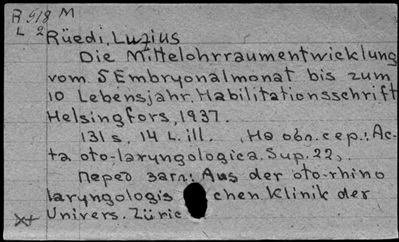 R 918 M
L 2
Rüedi, Luzius
Die Mittelohrraumentwicklung
vom 5 Embryonalmonat bis zum
10 Lebensjahr. Habilitationsschrift
Helsingfors, 1937.
131 s, 14 L. ill. На обл. сер.: Ac-
ta oto-laryngologica. Sup. 22,.
Перед загл: Aus der oto-rhino
laryngologis chen Klinik der
Univers. Züric